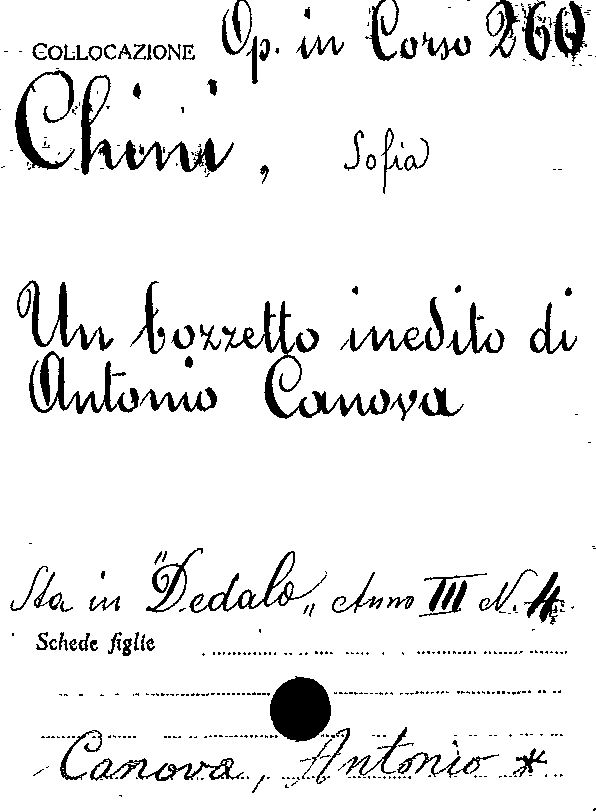 COLLOCAZIONE Op. in Corso 260
Chini, Sofia
Un bozzetto inedito di
Antonio Canova
Sta in "Dedalo„ Anno III N. 4
Schede figlie
Canova, Antonio *